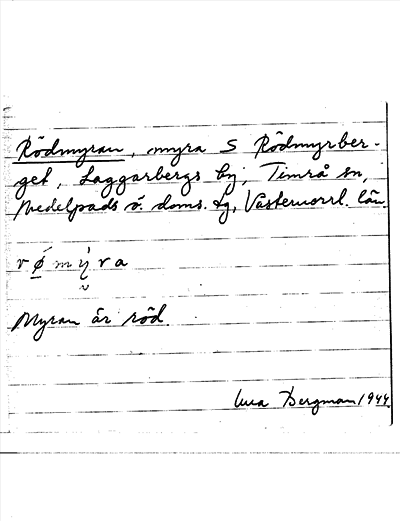 Rödmyran, myra S Rödmyrber-
get, Laggarbergs by, Timrå sn,
Medelpads ö. doms. tg, Västernorrl. län.
Myran är röd.
Bergman 1944